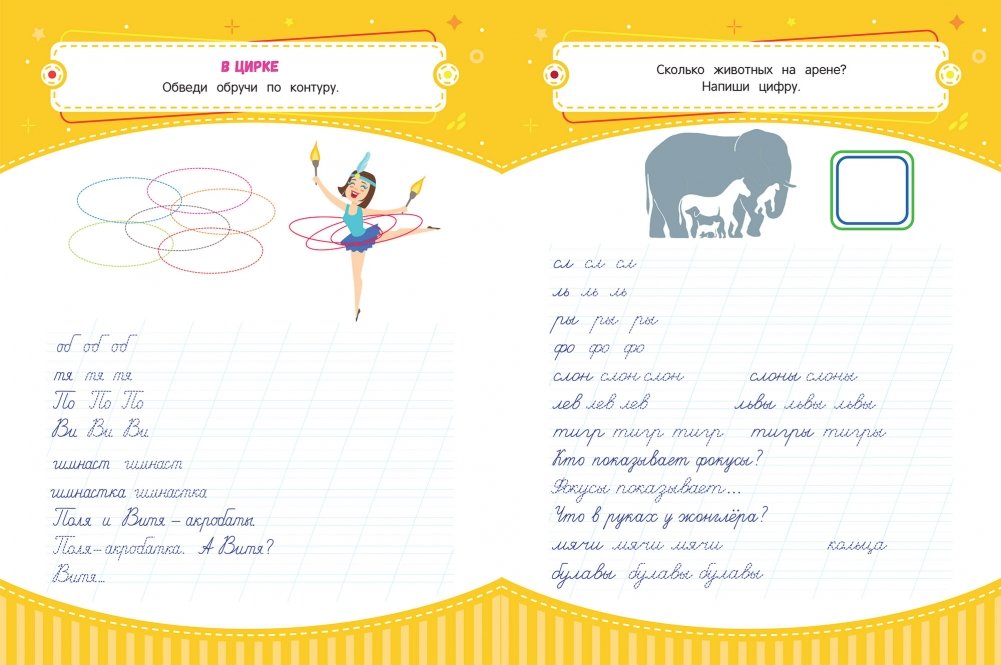 В ЦИРКЕ
Обведи обручи по контуру.
об об об
тя тя тя
По По По
Ви Ви Ви
гимнаст гимнаст
гимнастка гимнастка
Поля и Витя – акробаты.
Поля – акробатка. А Витя?
Витя...
Сколько животных на арене?
Напиши цифру.
сл сл сл
ль ль ль
ры ры ры
фо фо фо
слон слон слон слоны слоны
лев лев лев львы львы львы
тигр тигр тигр тигры тигры
Кто показывает фокусы?
Фокусы показывает...
Что в руках у жонглёра?
мячи мячи мячи кольца
булавы булавы булавы